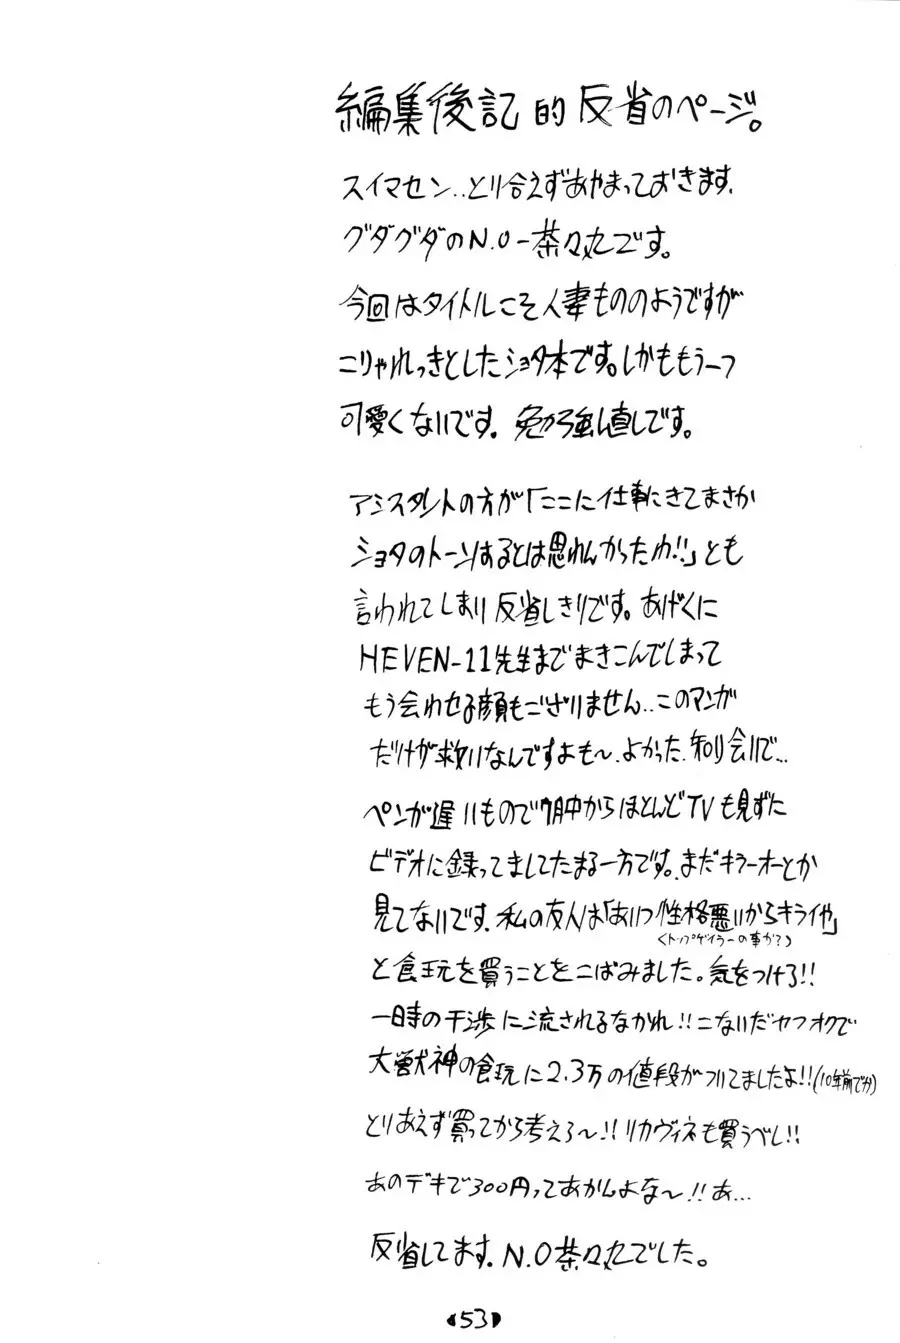 編集後記的反省のページ。
スイマセン..とり合えずあやまっておきます.
グダグダのN.O-茶々丸です。
今回はタイトルこそ人妻もののようですが
こりゃれっきとしたショタ本です。しかももう一つ
可愛くないです.勉強し直しです。
アシスタントの方が「ここに仕事にきてまさか
ショタのトーンはるとは思わんかったわ!!」とも
言われてしまい反省しきりです。あげくに
HEVEN-11先生までまきこんでしまって
もう会わせる顔もございません..このマンガ
だけが救いなんですよも〜.よかった.知り合いで...
ペンが遅いもので7月中からほとんどTVも見ずに
ビデオに録ってましてたまる一方です。まだキラーオーとか
見てないです.私の友人は「あいつ性格悪いからキライや」
<トップゲイラーの事か?>
と食玩を買うことをこばみました。気をつけろ!!
一時の干渉に流されるなかれ!!こないだヤフオクで
大獣神の食玩に2.3万の値段がついてましたよ!!(10年前で分)
とりあえず買ってから考えろ〜!!リカヴィネも買うべし!!
あのデキで300円ってあかんよな〜!!あ...
反省してます.N.O茶々丸でした。
53